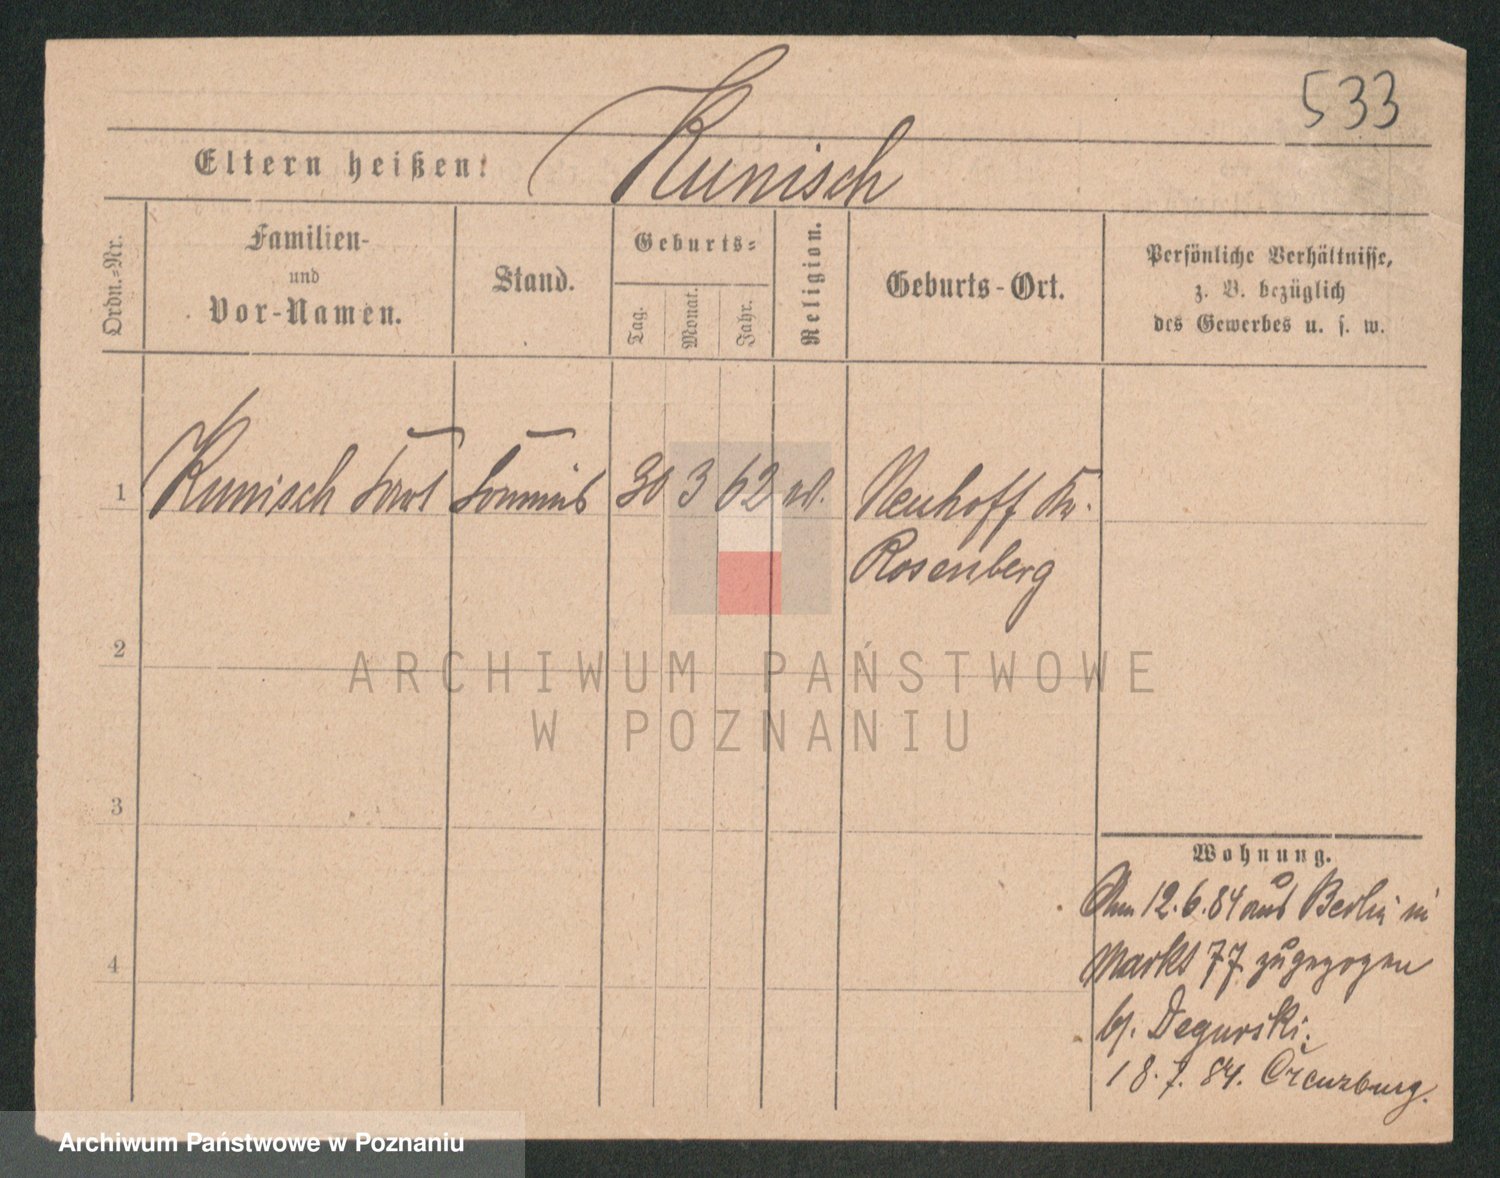 533
Eltern heißen: Kunisch
Ordn.=Nr.
Familien-
und
Vor-Namen.
Stand.
Geburts=
Tag.
Monat.
Jahr.
Religion.
Geburts-Ort.
Persönliche Verhältnisse,
z. B. bezüglich
des Gewerbes u. s. w.
1 Kunisch Carl Commis 30 3 62 ev. Neuhoff Kr.
Rosenberg
2
ARCHIWUM PAŃSTWOWE
W POZNANIU
3
Wohnung.
Am 12.6.84 aus Berlin in
Markt 77 zugezogen
4
b/. Degurski.
18.7.84. Creuzburg.
Archiwum Państwowe w Poznaniu